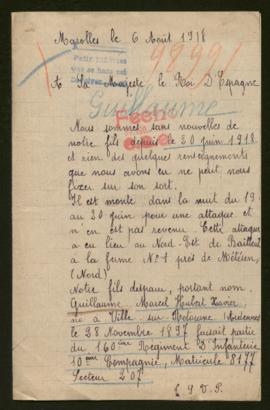 Marolles le 6 Août 1918
9899
A Sa Majesté le Roi D'Espagne
Guillaume
Nous sommes sans nouvelles de
notre fils depuis le 20 juin 1918.
et rien des quelques renseignements
que nous avons eu ne peut nous
fixer sur son sort.
Il est monté dans la nuit du 19
au 20 juin pour une attaque et
n'en est pas revenu. Cette attaque
a eu lieu au Nord-Est de Bailleul
à la ferme N° 1 près de Météren,
(Nord)
Notre fils disparu, portant nom,
Guillaume Marcel Hubert Xavier,
né à Ville sur Retourne (Ardennes)
le 28 Novembre 1897 faisait partie
du 160ème Régiment D'Infanterie
10ème Compagnie, Matricule 8177
Secteur 207
T. S. V. P.